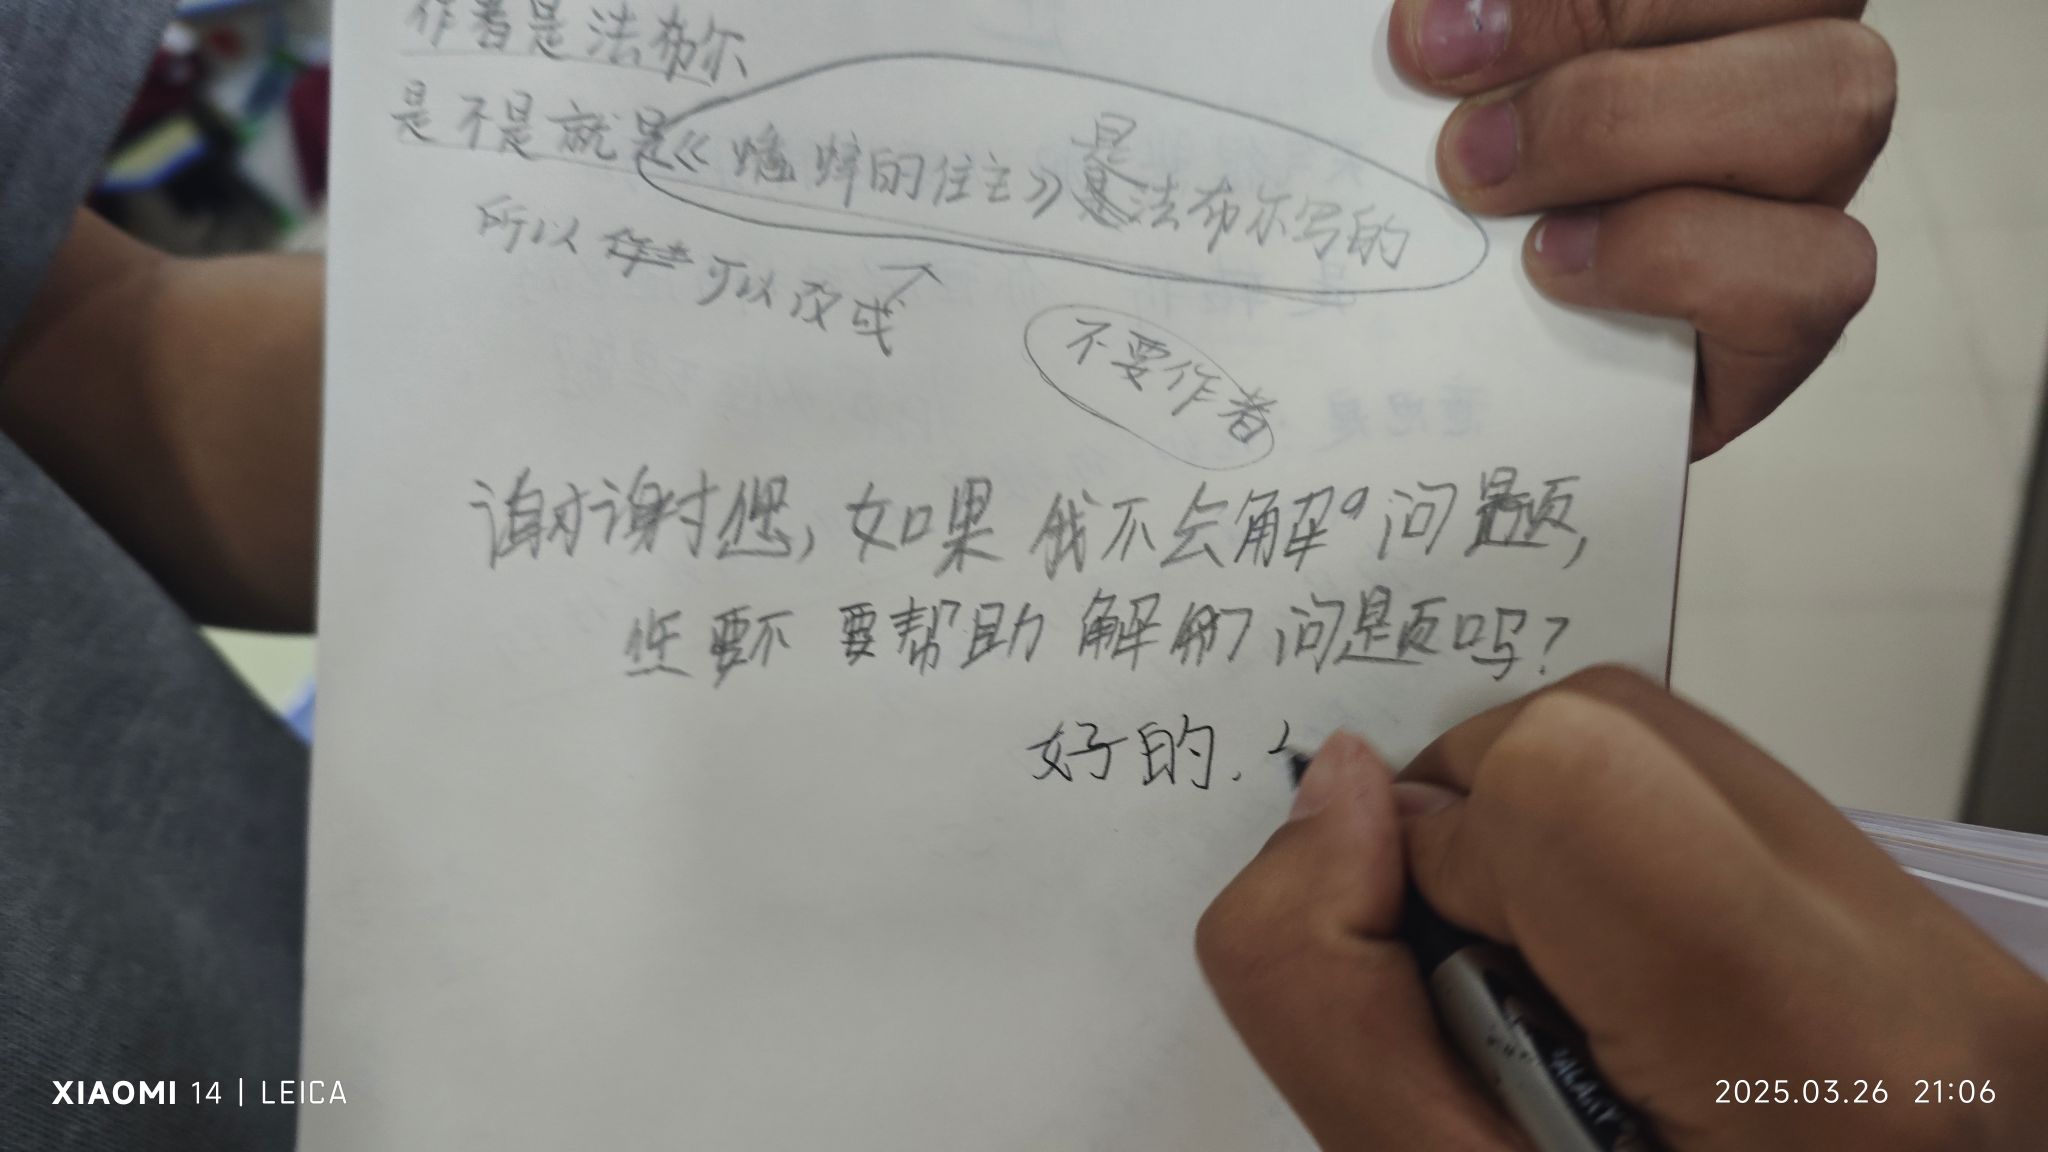 作者是法布尔
是不是就是《蟋蟀的住宅》是法布尔写的
是
所以 可以改成
不要作者
谢谢您,如果我不会解问题,
您要不要帮助解的问题吗?
好的.
XIAOMI 14 | LEICA
2025.03.26 21:06